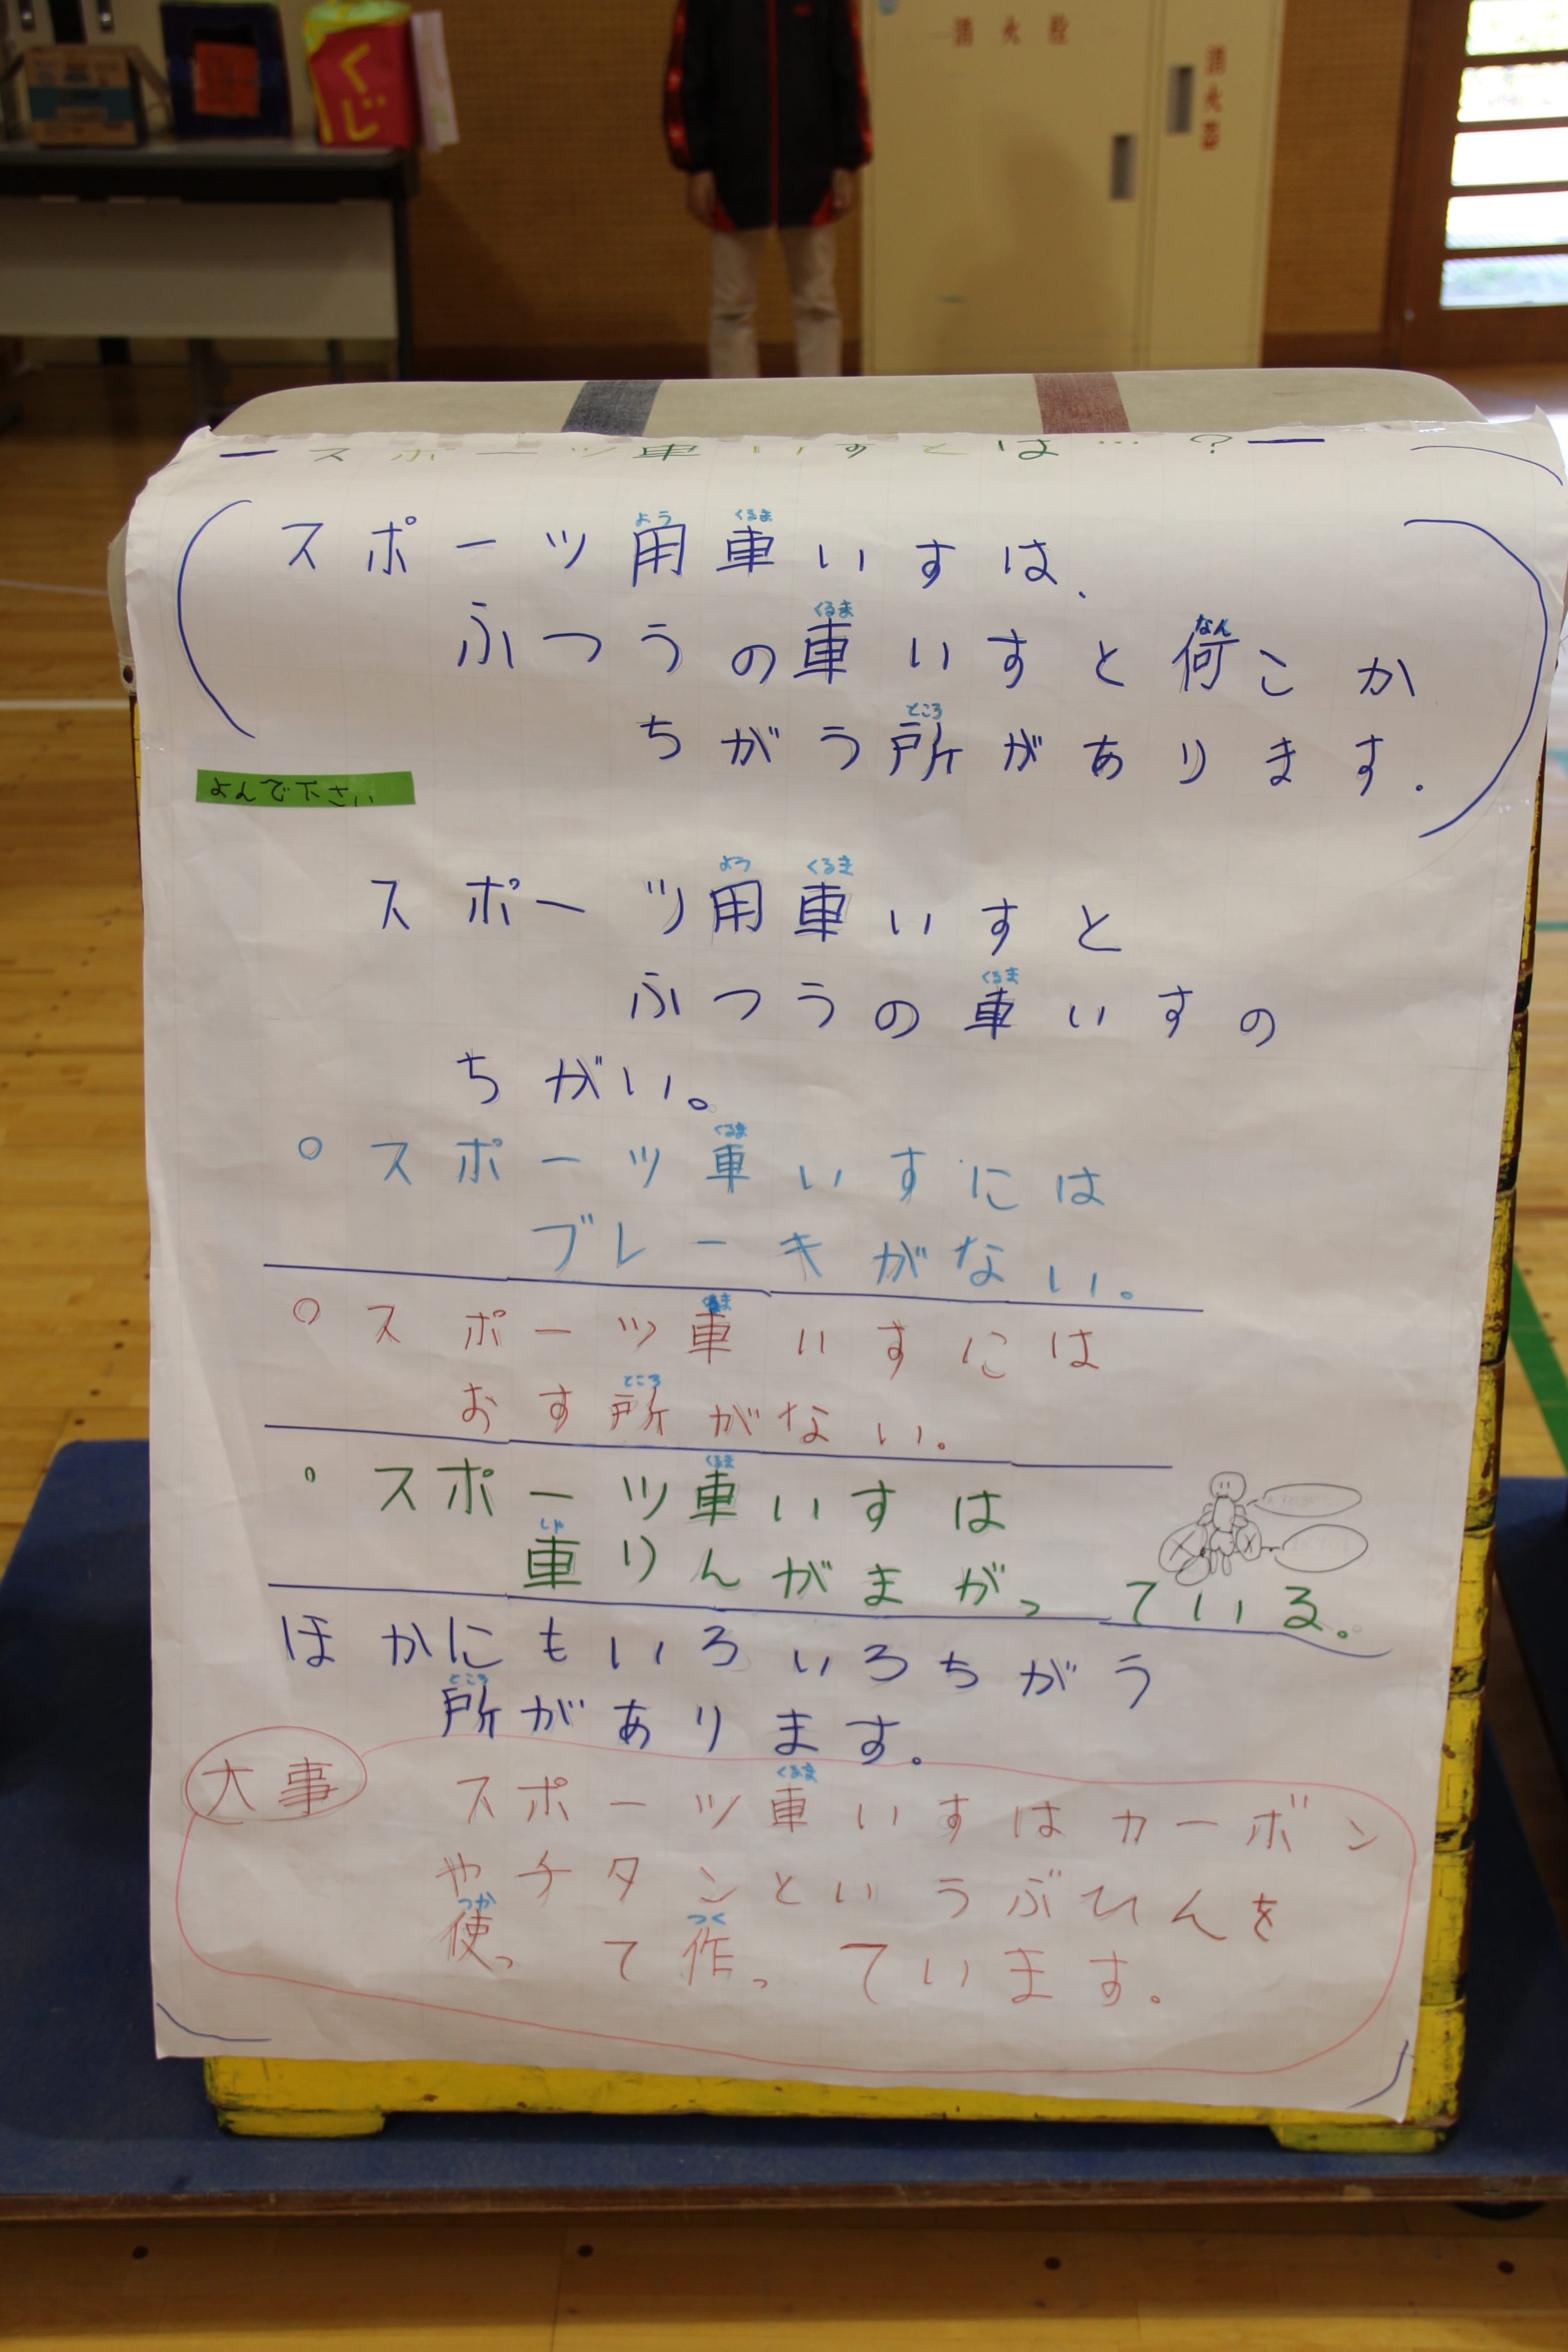 消火栓
消火器
くじ
ースポーツ車いすとは…?ー
スポーツ用車いすは、
ふつうの車いすと何こか
ちがう所があります。
よんで下さい
スポーツ用車いすと
ふつうの車いすの
ちがい。
○スポーツ車いすには
ブレーキがない。
○スポーツ車いすには
おす所がない。
○スポーツ車いすは
車りんがまがっている。
ほかにもいろいろちがう
所があります。
大事
スポーツ車いすはカーボン
やチタンというぶひんを
使って作っています。